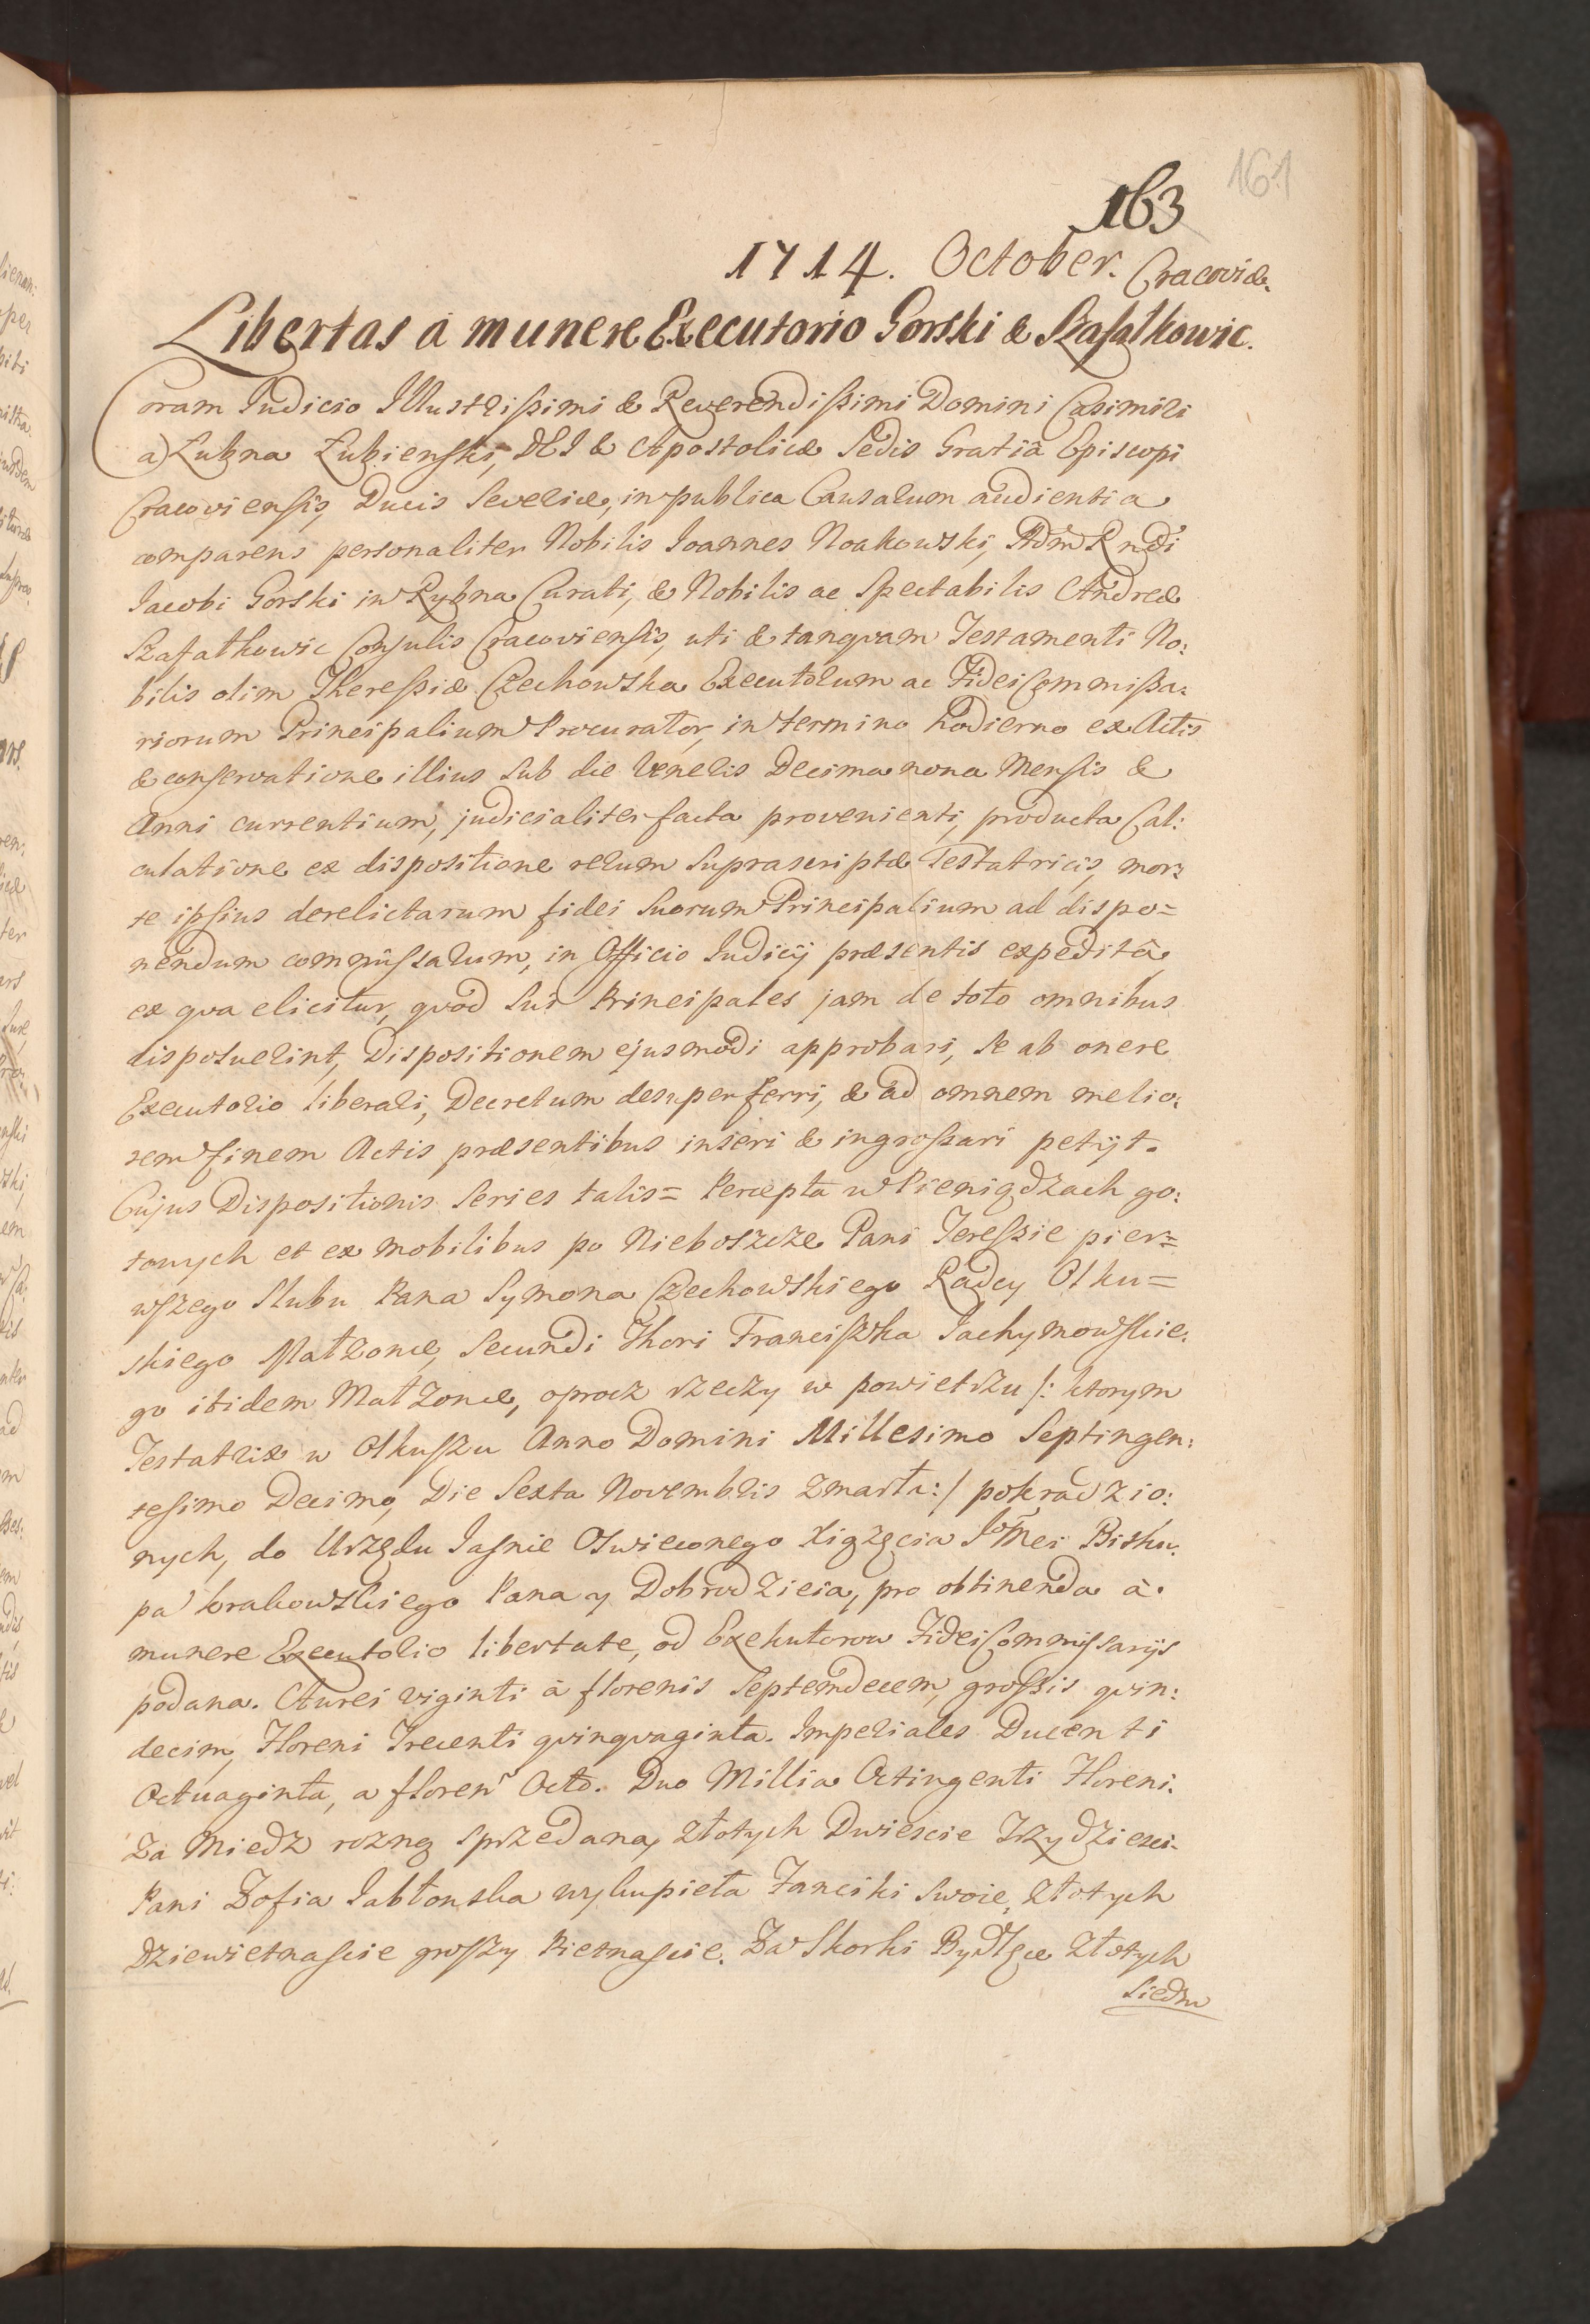 161
163
1714. October. Cracoviæ.
Libertas à munere Executorio Gorski & Szafatkowic.
Coram Iudicio Illustrissimi & Reverendissimi Domini Casimiri
a Łubna Łubienski, DEI & Apostolicæ Sedis Gratiâ Episcopi
Cracoviensis, Ducis Severiæ, in publica Causarum audientia
comparens personaliter Nobilis Ioannes Noakowski, Adm Rndi
Iacobi Gorski in Rybna Curati, & Nobilis ac Spectabilis Andreæ
Szafatkowic Consulis Cracoviensis, uti & tanqvam Testamenti No:
bilis olim Theressiæ Czechowska Executorum ac FideiCommissa:
riorum Principalium Procurator, in termino hodierno ex Actis
& conservatione illius sub die Veneris Decima nona Mensis &
Anni currentium, judicialiter facta provenienti, producta Cal:
culatione ex dispositione rerum suprascriptæ Testatricis, mor:
te ipsius derelictarum fidei suorum Principalium ad dispo=
nendum commissarum, in Officio Iudicij præsentis expeditâ,
ex qva elicitur, qvod sui Principales jam de toto omnibus
disposuerint, Dispositionem ejusmodi approbari, se ab onere
Executorio liberari, Decretum desuper ferri, & ad omnem melio:
rem finem Actis præsentibus inseri & ingrossari petijt.
Cujus Dispositionis Series talis= Percepta w Pieniądzach go:
towych et ex mobilibus po Nieboszcze Pani Teressie pier=
wszego Slubu Pana Symona Czechowskiego Radcy Olku=
skiego Małzonce, secundi Thori Franciszka Iachymowskie:
go itidem Małzonce, oprocz rzeczy w powietrzu /: ktorym
Testatrix w Olkuszu Anno Domini Millesimo Septingen:
tesimo Decimo, Die Sexta Novembris zmarła :/ pokradzio:
nych, do Urzędu Iasnie Oswieconego Xiązęcia Imci Bisku:
pa krakowskiego Pana y Dobrodzieia, pro obtinenda à
munere Executorio libertate, od Exekutorow FideiCommissarijs
podana. Aurei viginti à florenis Septemdecem, grossis qvin:
decim, Floreni Trecenti qvinqvaginta. Imperiales Ducenti
Octuaginta, a floren Octo. Duo Millia Octingenti Floreni.
Za Miedz rozną sprzedaną złotych Dwiescie Trzydziesci.
Pani Zofia Iabłonska wykupieła Fanciki swoie, złotych
Dziewietnascie groszy Pietnascie. Za Skorki Bydlęce złotych
Siedm